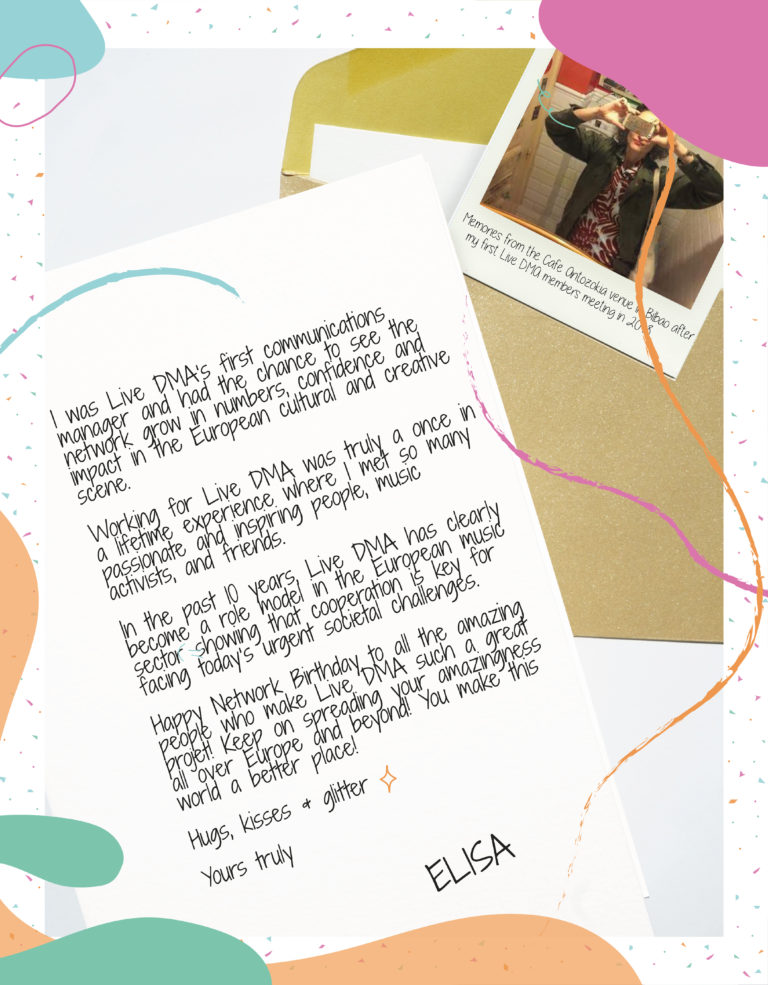 Memories from the Cafe Antozokia venue in Bilbao after
my first Live DMA members meeting in 2013
I was Live DMA's first communications
manager and had the chance to see the
network grow in numbers, confidence and
impact in the European cultural and creative
scene.
Working for Live DMA was truly a once in
a lifetime experience where I met so many
passionate and inspiring people, music
activists, and friends.
In the past 10 years, Live DMA has clearly
become a role model in the European music
sector showing that cooperation is key for
facing today's urgent societal challenges.
Happy Network Birthday to all the amazing
people who make Live DMA such a great
projet! Keep on spreading your amazingness
all over Europe and beyond! You make this
world a better place!
Hugs, kisses & glitter
Yours truly
ELISA